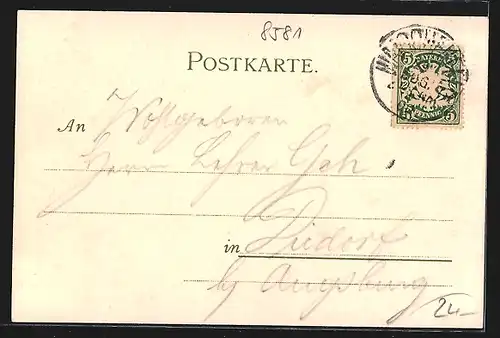 8581
POSTKARTE.
An Wohlgeboren
Herr Lehrer
in Diedorf
by Augsburg
24.-